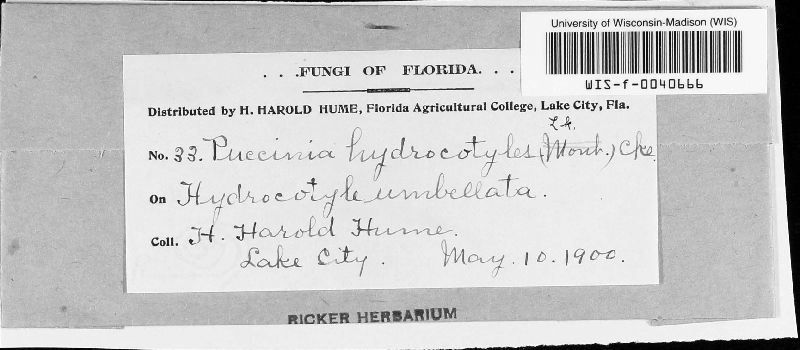 University of Wisconsin-Madison (WIS)
WIS-f-0040666
. . .FUNGI OF FLORIDA. . .
Distributed by H. HAROLD HUME, Florida Agricultural College, Lake City, Fla.
Lk.
No. 33. Puccinia hydrocotyles (Mont.) Cke.
On Hydrocotyle umbellata.
Coll. H. Harold Hume.
Lake City. May. 10. 1900.
RICKER HERBARIUM